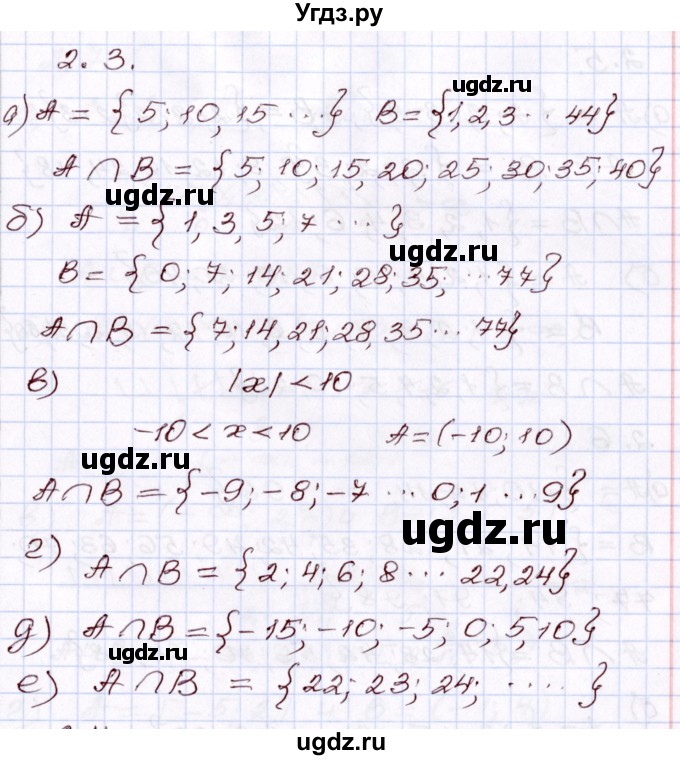 Угдз.ру
2. 3.
ugdz.ru
а) A = { 5; 10, 15 ...} B = {1, 2, 3 .. 44}
A ∩ B = {5; 10; 15, 20; 25; 30; 35; 40}
ugdz.ru
б) A = { 1, 3, 5; 7 ... }
ugdz.ru
B = { 0; 7; 14; 21; 28; 35; ... 77}
A ∩ B = {7; 14, 21; 28, 35 ... 77}
в) |x| < 10
-10 < x < 10 A = (-10; 10)
ugdz.ru
A ∩ B = {-9; -8; -7 ... 0; 1 ... 9}
ugdz.ru
г) A ∩ B = {2; 4; 6; 8 ... 22, 24}
д) A ∩ B = {-15; -10; -5; 0; 5, 10}
ugdz.ru
е) A ∩ B = {22; 23; 24; ..... }
ugdz.ru
ugdz.ru